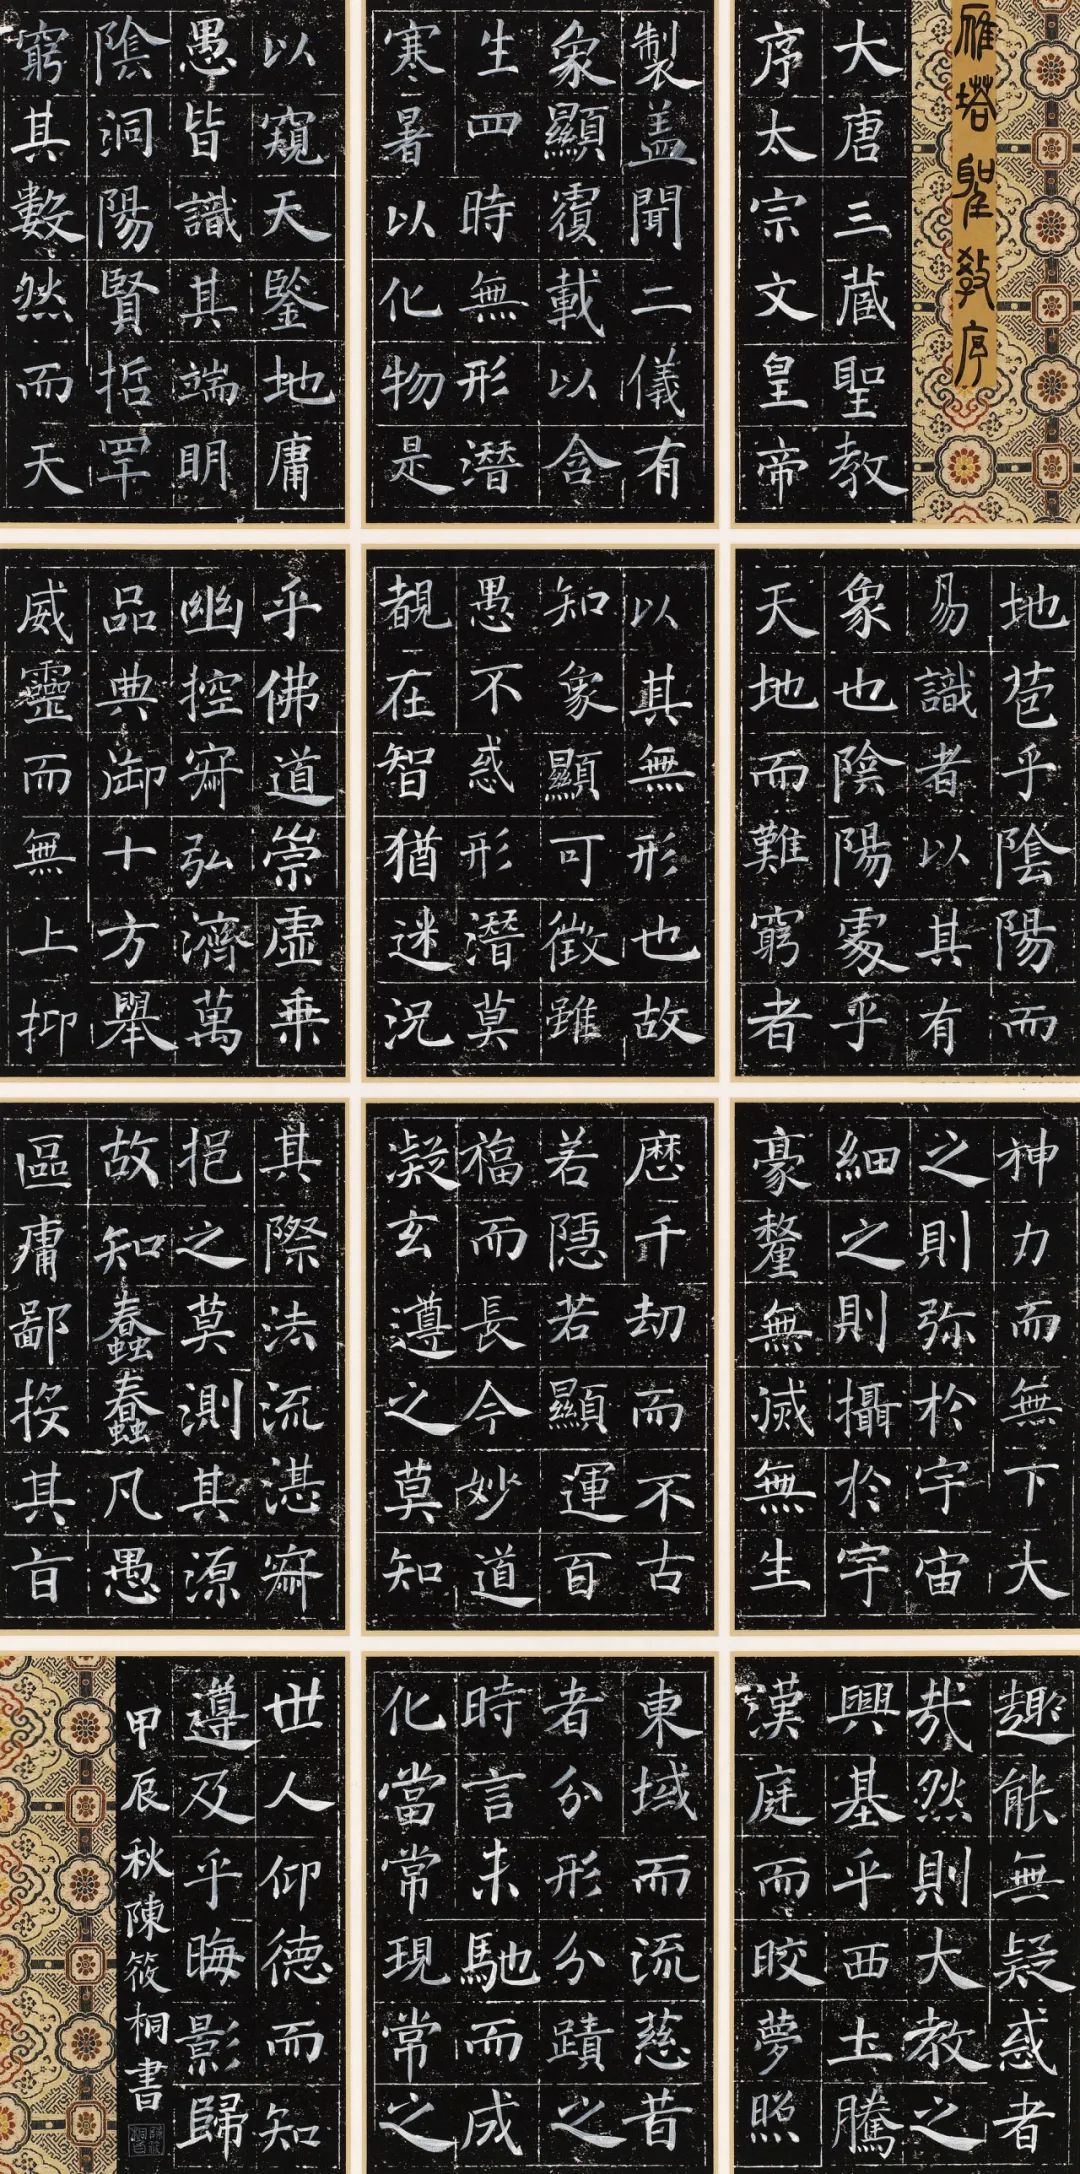 雁塔聖教序
大唐三藏聖教
序太宗文皇帝
製盖聞二儀有
象顯覆載以含
生四時無形潛
寒暑以化物是
以窺天鑒地庸
愚皆識其端明
陰洞陽賢哲罕
窮其數然而天
地苞乎陰陽而
易識者以其有
象也陰陽處乎
天地而難窮者
以其無形也故
知象顯可徵雖
愚不惑形潛莫
覩在智猶迷況
乎佛道崇虛乗
幽控寂弘濟萬
品典御十方舉
威靈而無上抑
神力而無下大
之則弥於宇宙
細之則攝於宇
豪釐無滅無生
歷千劫而不古
若隱若顯運百
福而長今妙道
凝玄遵之莫知
其際法流湛寂
挹之莫測其源
故知蠢蠢凡愚
區庸鄙投其旨
趣能無疑惑者
哉然則大教之
興基乎西土騰
漢庭而皎夢照
東域而流慈昔
者分形分蹟之
時言未馳而成
化當常現常之
世人仰德而知
遵及乎晦影歸
甲辰秋陳筱桐書